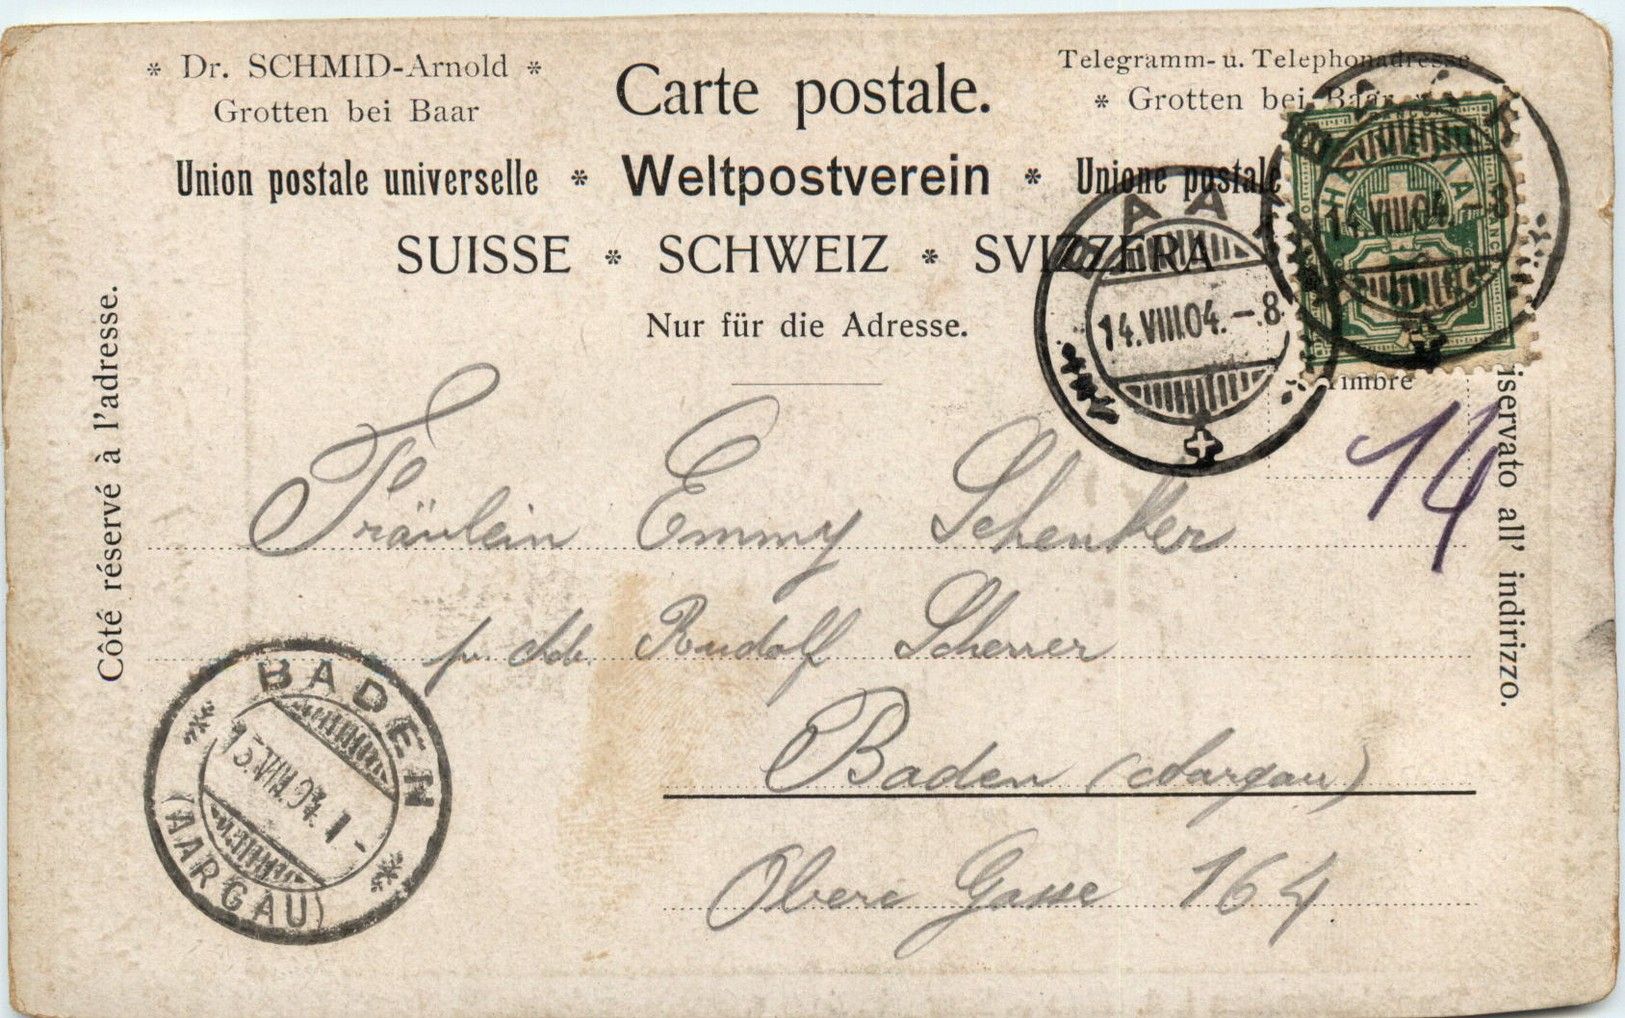 * Dr. SCHMID-Arnold *
Grotten bei Baar
Carte postale.
Telegramm- u. Telephonadresse
* Grotten bei Baar
Union postale universelle * Weltpostverein * Unione postale
SUISSE * SCHWEIZ * SVIZZERA
Nur für die Adresse.
Côté réservé à l'adresse.
BAAR
14.VIII.04.-8
BAAR
14.VIII.04.-8
HELVETIA
FRANCO
Timbre
iservato all' indirizzo.
14
Fräulein Emmy Schenker
Rudolf Scherrer
Baden (Aargau)
Obere Gasse 164
BADEN
15.VIII.04. 1-
(AARGAU)